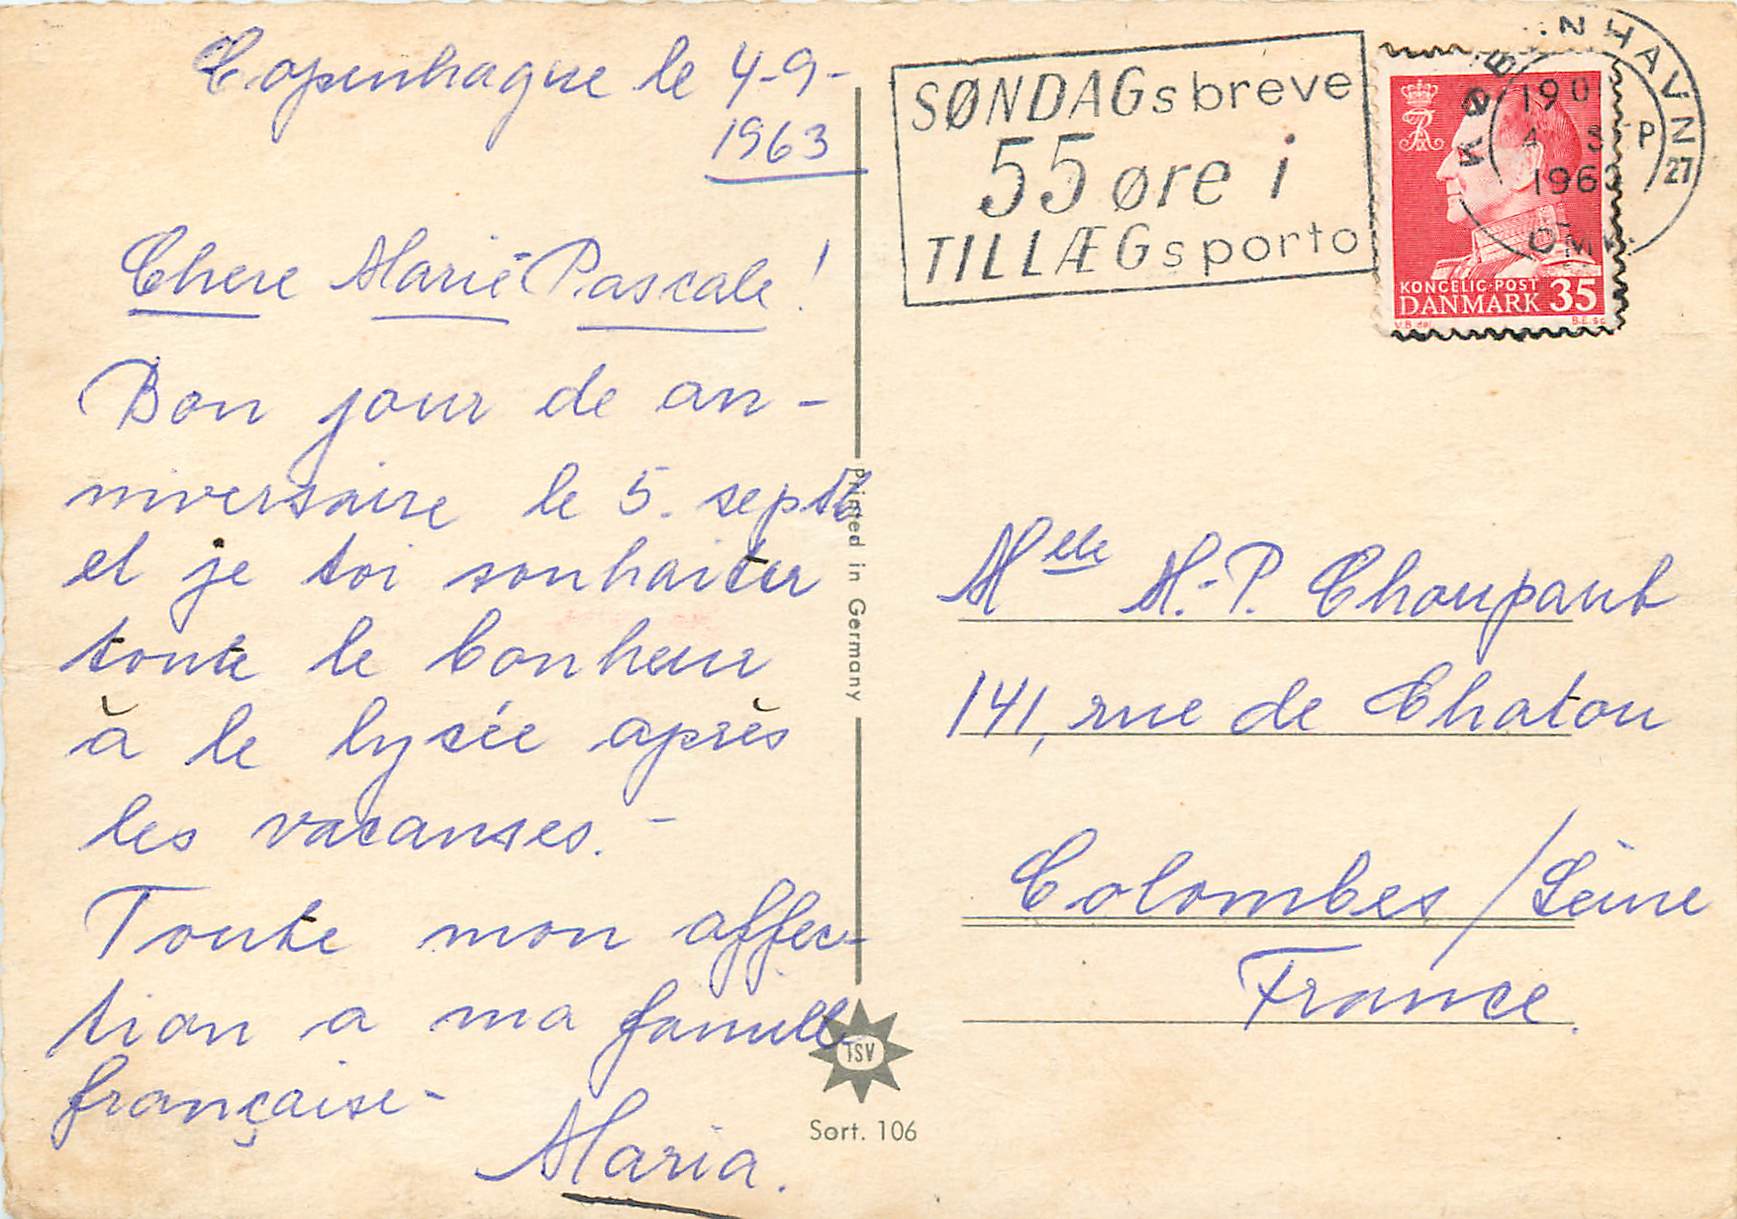 Copenhague le 4-9-
1963
Chere Marie Pascale!
Bon jour de an-
niversaire le 5. septb
et je toi souhaiter
toute le bonheur
à le lycée après
les vacanses. -
Toute mon affec-
tion a ma famille
française-
Maria.
SØNDAGsbreve
55 øre i
TILLÆGsporto
KØBENHAVN
27
OMK.
KONGELIG POST
DANMARK 35
Printed in Germany
Melle M.-P. Choupaut
141, rue de Chatou
Colombes / Seine
France.
TSV
Sort. 106